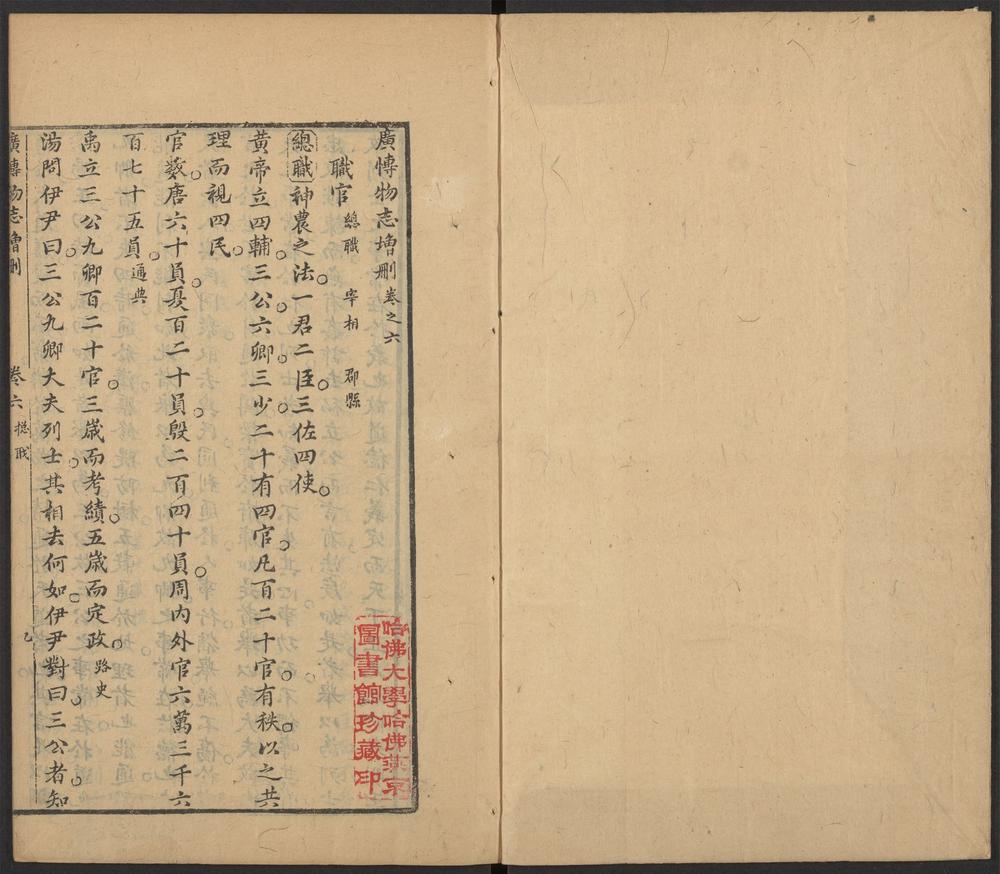 廣博物志增刪卷之六
職官 總職 宰相 郡縣
總職神農之法一君二臣三佐四使
黃帝立四輔三公六卿三少二十有四官凡百二十官有秩以之共
理而視四民
官數唐六十員夏百二十員殷二百四十員周內外官六萬三千六
百七十五員通典
禹立三公九卿百二十官三歲而考績五歲而定政路史
湯問伊尹曰三公九卿大夫列士其相去何如伊尹對曰三公者知
廣博物志增刪 卷六 總職
哈佛大學哈佛燕京
圖書館珍藏印